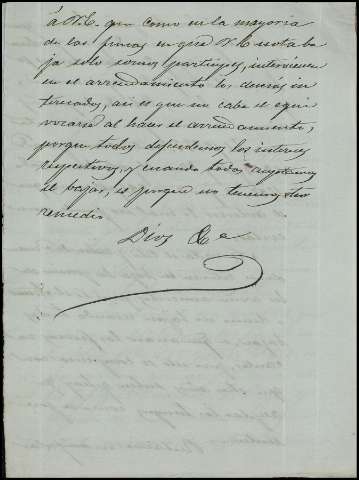 á V.E. que como en la mayoria
de las fincas en que V.E. nota ba
ja solo somos participes, intervienen
en el arrendamiento los demas in
teresados, asi es que no cabe el equi
vocarse al hacer el arrendamiento,
porque todos defendemos los intereses
respectivos, y cuando todos aceptamos
la bajas, es porque no tenemos otro
remedio
Dios &a